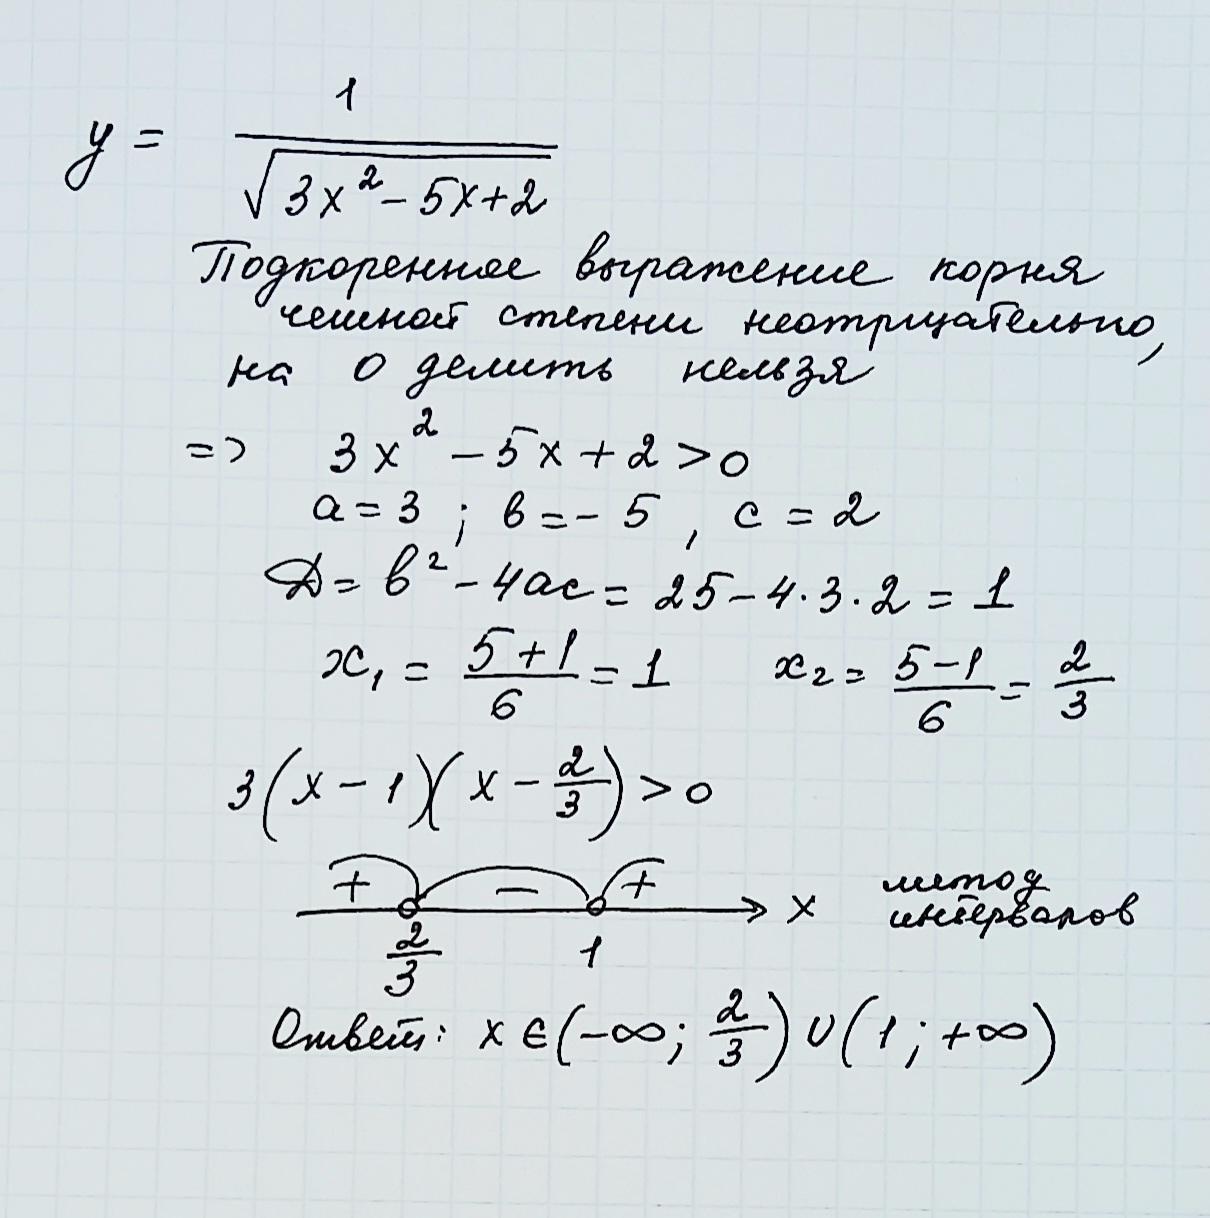 y = 1 / √(3x² - 5x + 2)
Подкоренное выражение корня
четной степени неотрицательно,
на 0 делить нельзя
=> 3x² - 5x + 2 > 0
a = 3 ; b = - 5 , c = 2
D = b² - 4ac = 25 - 4·3·2 = 1
x₁ = (5+1)/6 = 1 x₂ = (5-1)/6 = 2/3
3(x - 1)(x - 2/3) > 0
+ - + x метод
интервалов
2/3 1
Ответ: x ∈ (-∞; 2/3) ∪ (1; +∞)